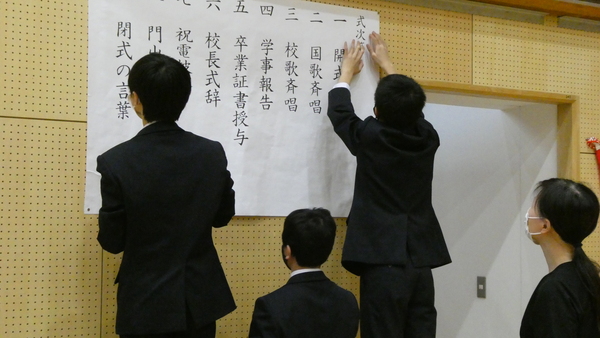 式次
一 開式
二 国歌斉唱
三 校歌斉唱
四 学事報告
五 卒業証書授与
六 校長式辞
七 祝電
門出
閉式の言葉